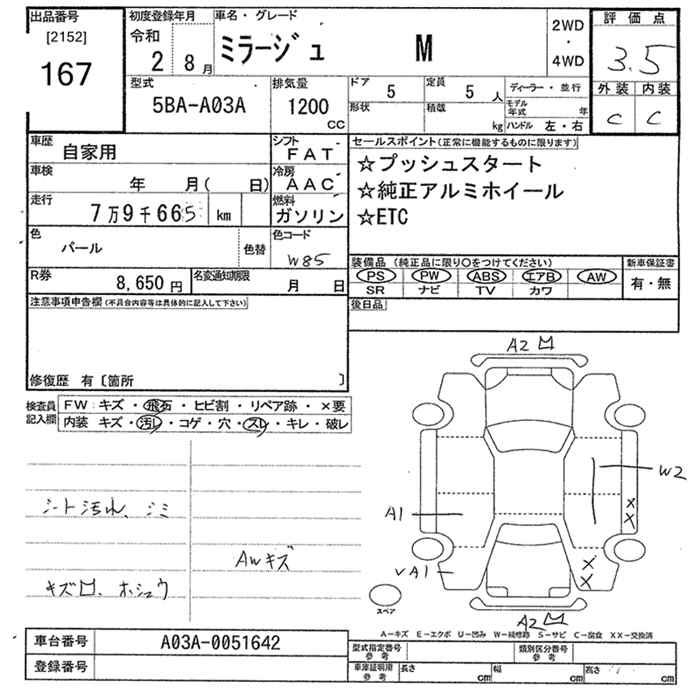 出品番号 初度登録年月 車名・グレード 2WD・4WD 評価点
[2152] 令和
167 2 8月 ミラージュ M 3.5
型式 排気量 ドア 5 定員 5人 ディーラー・並行 外装 内装
5BA-A03A 1200cc 形状 積載 kg モデル年式 年 C C
ハンドル 左・右
車歴 自家用 シフト FAT セールスポイント(正常に機能するものに限ります)
車検 年 月( 日) 冷房 AAC ☆プッシュスタート
走行 7万9千665 km 燃料 ガソリン ☆純正アルミホイール
☆ETC
色 パール 色替 色コード W85
装備品 (純正品に限り〇をつけてください) 新車保証書
R券 8,650円 名変通知期限 月 日 PS PW ABS エアB AW 有・無
SR ナビ TV カワ
注意事項申告欄(不具合内容等は具体的に記入して下さい) 後日品
修復歴 有〔箇所 〕
検査員記入欄 FW: キズ・飛石・ヒビ割・リペア跡・×要
内装 キズ・汚レ・コゲ・穴・スレ・キレ・破レ
シート汚れ、シミ
AWキズ
キズ凹、ホシュウ
A2凹
W2
A1
XX
✓A1
XX
スペア
A2凹
A-キズ E-エクボ U-凹み W-補修跡 S-サビ C-腐食 XX-交換済
車台番号 A03A-0051642 型式指定番号 参考 類別区分番号 参考
登録番号 車庫証明用 参考 長さ cm 幅 cm 高さ cm